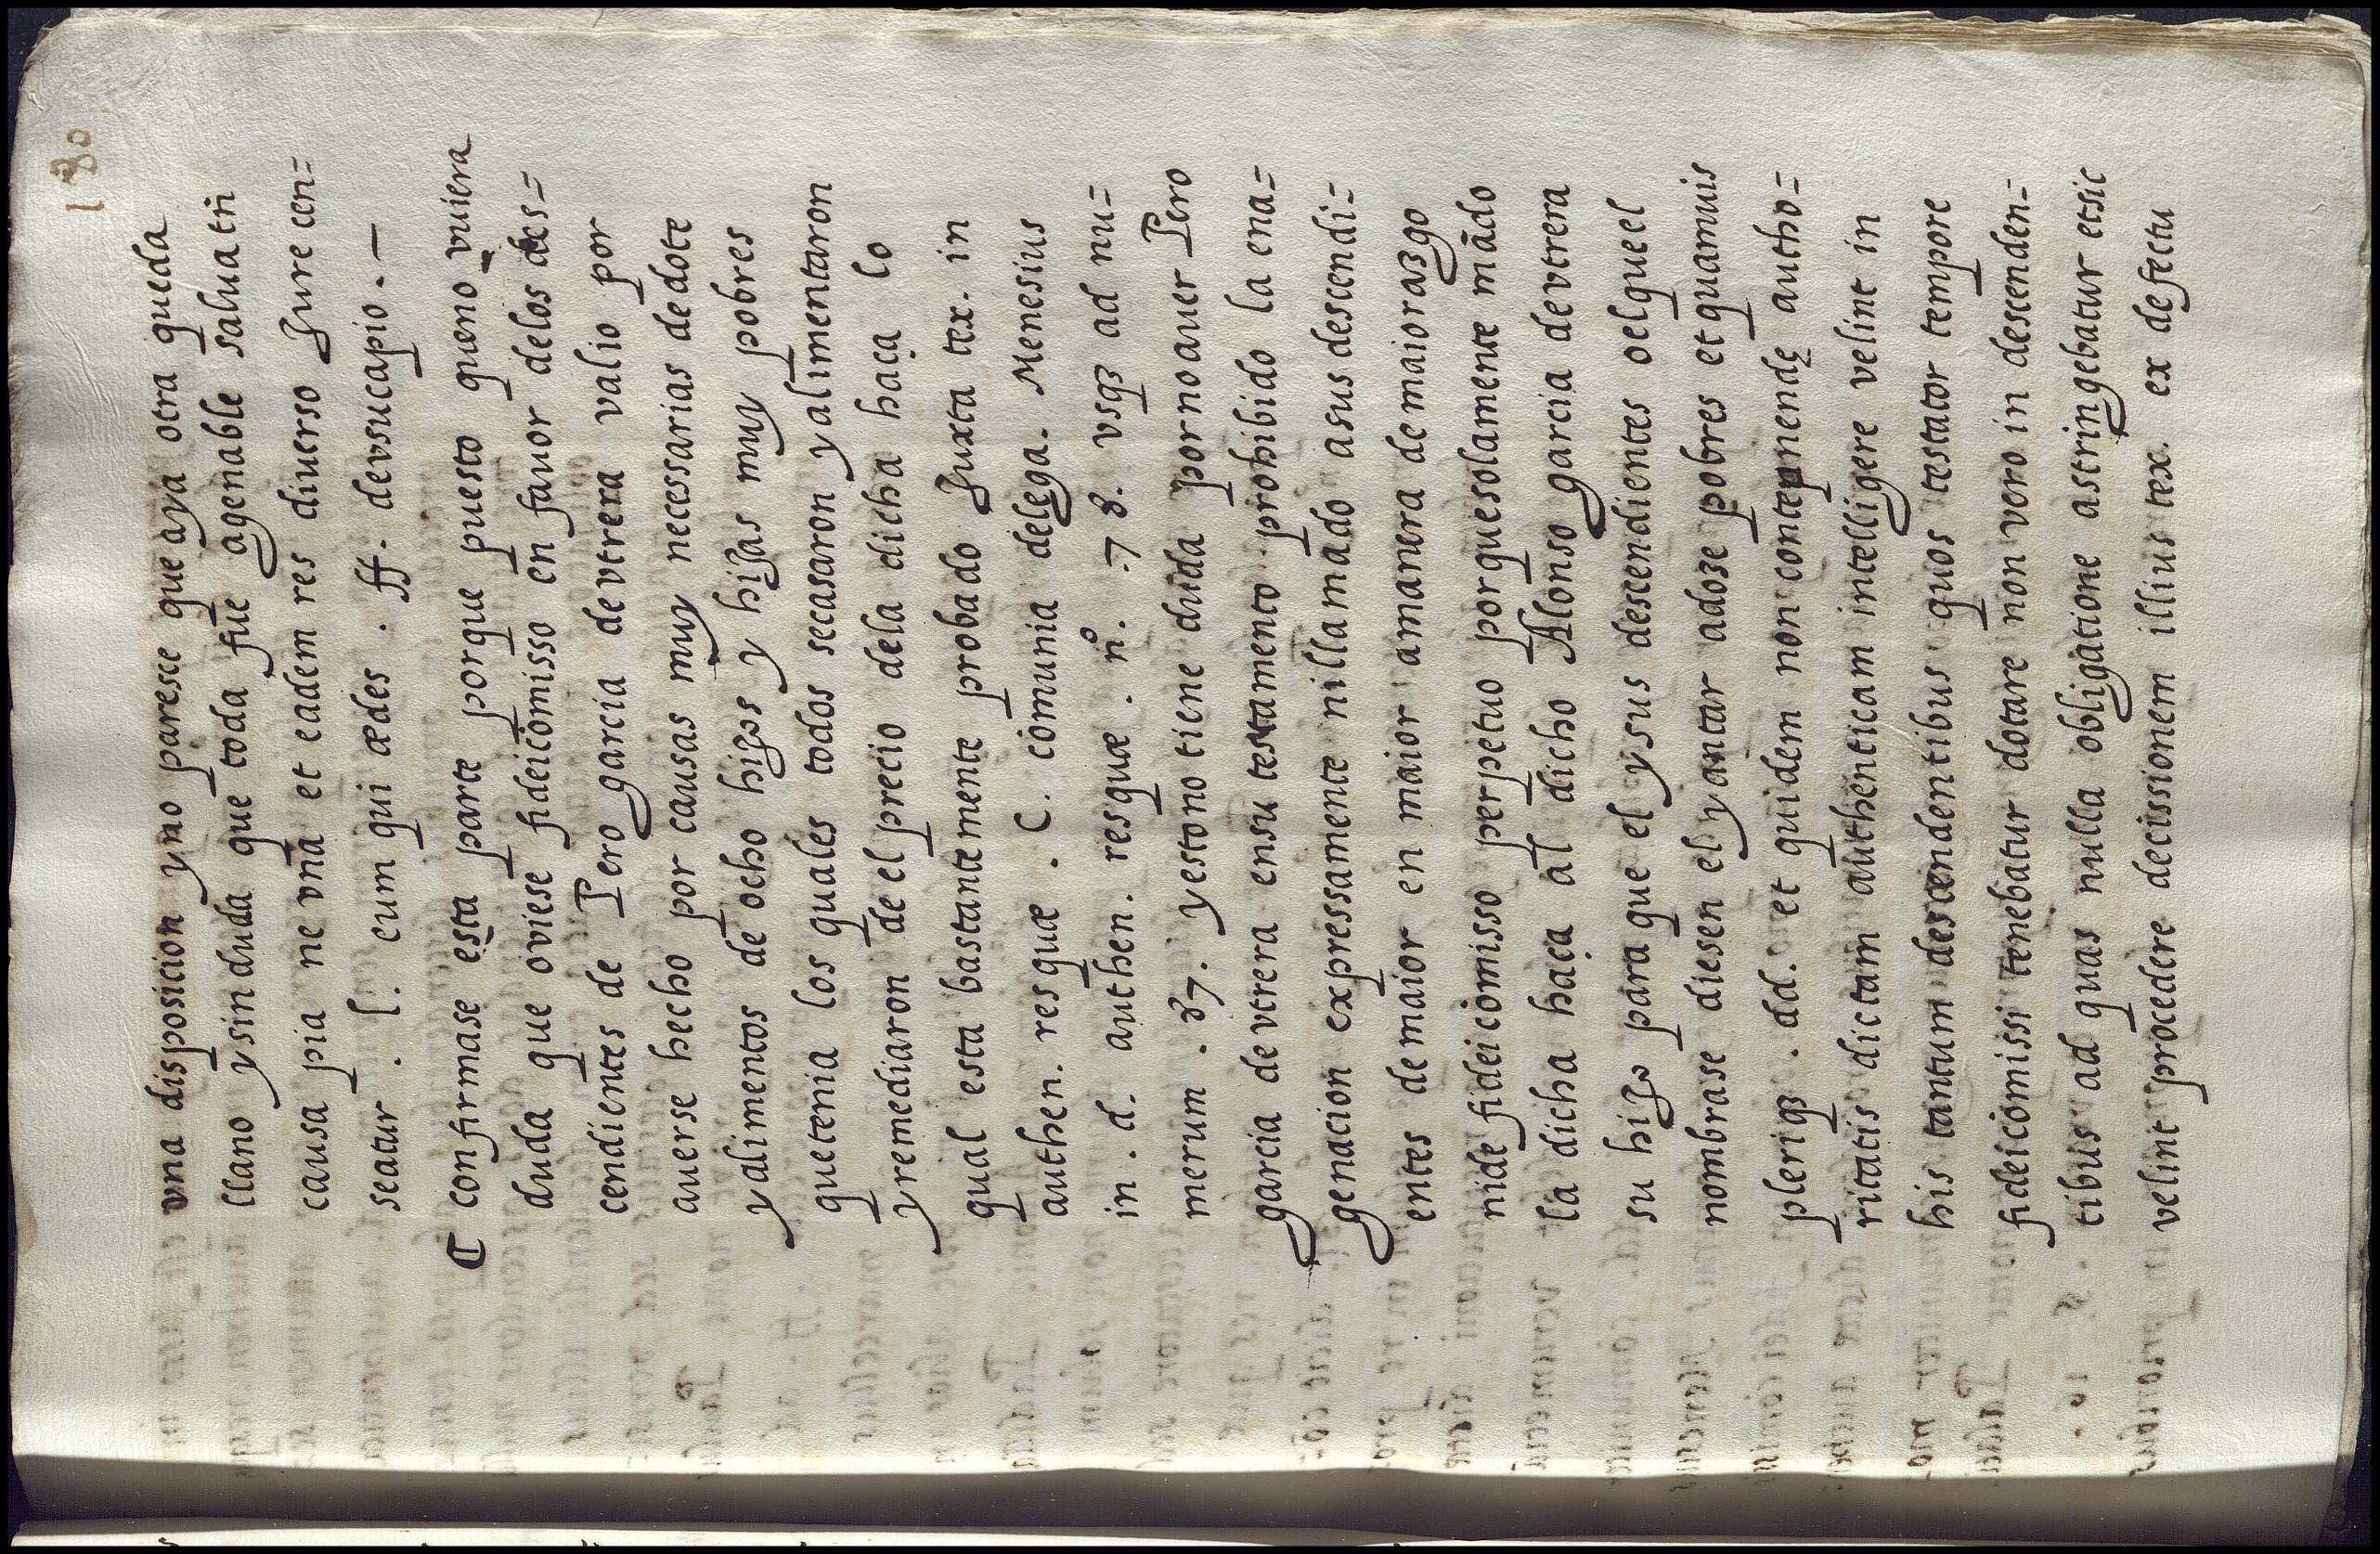 180
vna disposicion y no paresce que aya otra queda
llano y sin duda que toda fue agenable salua tñ
causa pia ne vña et eadem res diuerso Jure cen=
seatur . l. eum qui ædes . ff. de vsucapio . —
₡ confirmase esta parte porque puesto que no vuiera
duda que oviese fideicomisso en fauor de los des=
cendientes de Pero garcia de vtrera valio por
averse hecho por causas muy necessarias de dote
y alimentos de ocho hijos y hijas muy pobres
que tenia los quales todos se casaron y alimentaron
y remediaron de el precio dela dicha haça lo
qual esta bastantemente probado Juxta tex. in
authen. res quæ . C. comunia de lega. Menesius
in . d. authen. res quæ . nº. 78. vsqȝ ad nu=
merum . 87. y esto no tiene duda por no auer Pero
garcia de vtrera en su testamento prohibido la ena=
genacion expressamente ni llamado a sus descendi=
entes de maior en maior a manera de maiorazgo
ni de fideicomisso perpetuo porque solamente mādo
la dicha haça al dicho Alonso garcia de vtrera
su hijo para que el y sus descendientes o el que el
nombrase diesen el yantar a doze pobres et quamuis
pleriqȝ . dd. et quidem non contemnendę autho=
ritatis dictam authenticam intelligere velint in
his tantum descendentibus quos testator tempore
fideicomissi tenebatur dotare non vero in descenden=
tibus ad quas nulla obligatione astringebatur et sic
velint procedere decissionem illius tex. ex defectu